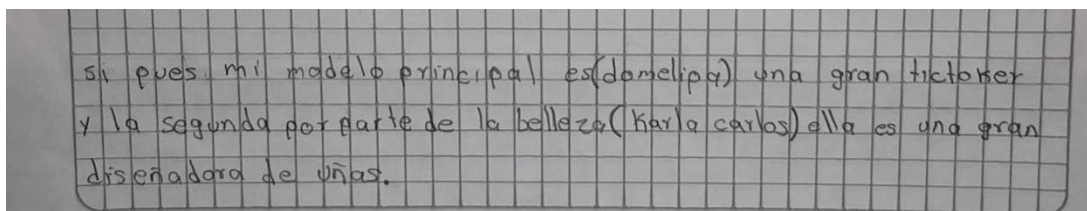 si pues mi modelo principal es(domelipa) una gran tictoker
y la segunda por parte de la belleza(Karla carlos) ella es una gran
diseñadora de uñas.